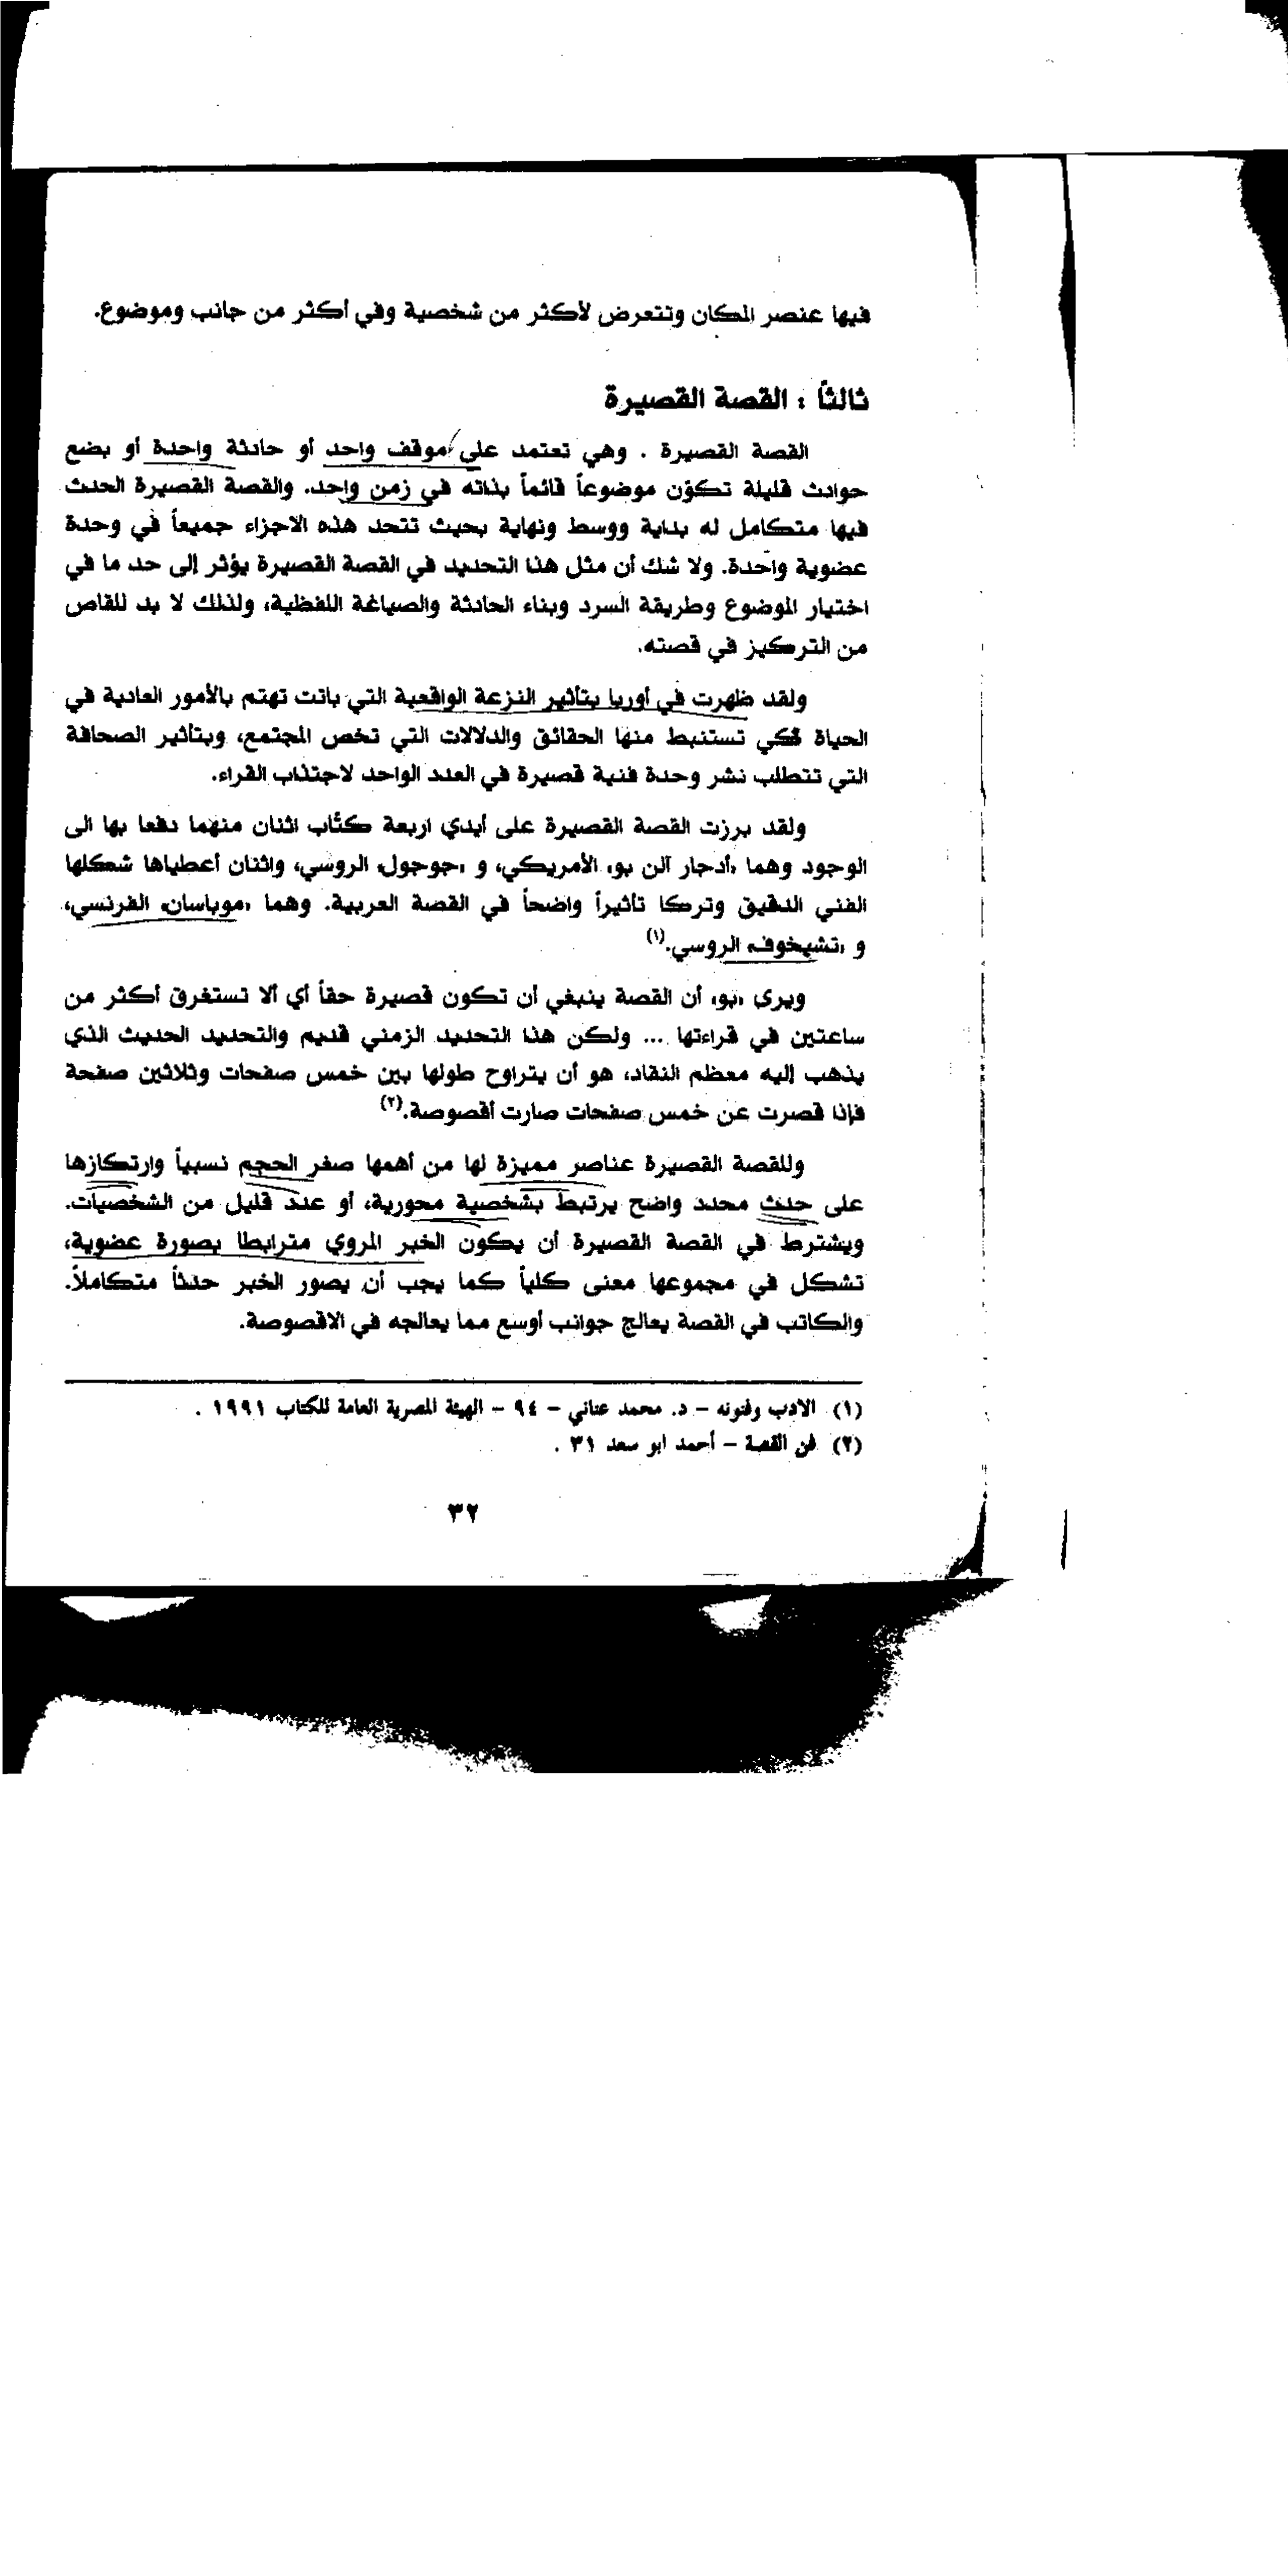 فيها عنصر المكان وتتعرض لأكثر من شخصية وفي أكثر من جانب وموضوع.
ثالثاً : القصة القصيرة
القصة القصيرة . وهي تعتمد على موقف واحد أو حادثة واحدة أو بضع
حوادث قليلة تكوّن موضوعاً قائماً بذاته في زمن واحد. والقصة القصيرة الحدث
فيها متكامل له بداية ووسط ونهاية بحيث تتحد هذه الاجزاء جميعاً في وحدة
عضوية واحدة. ولا شك أن مثل هذا التحديد في القصة القصيرة يؤثر إلى حد ما في
اختيار الموضوع وطريقة السرد وبناء الحادثة والصياغة اللفظية، ولذلك لا بد للقاص
من التركيز في قصته.
ولقد ظهرت في أوربا بتأثير النزعة الواقعية التي باتت تهتم بالأمور العادية في
الحياة لكي تستنبط منها الحقائق والدلالات التي تخص المجتمع، وبتأثير الصحافة
التي تتطلب نشر وحدة فنية قصيرة في العدد الواحد لاجتذاب القراء.
ولقد برزت القصة القصيرة على أيدي اربعة كتّاب اثنان منهما دفعا بها الى
الوجود وهما «أدجار آلن بو» الأمريكي، و «جوجول» الروسي، واثنان أعطياها شكلها
الفني الدقيق وتركا تأثيراً واضحاً في القصة العربية. وهما «موباسان» الفرنسي،
و «تشيخوف» الروسي.(١)
ويرى «بو» أن القصة ينبغي أن تكون قصيرة حقاً أي ألا تستغرق أكثر من
ساعتين في قراءتها ... ولكن هذا التحديد الزمني قديم والتحديد الحديث الذي
يذهب إليه معظم النقاد، هو أن يتراوح طولها بين خمس صفحات وثلاثين صفحة
فإذا قصرت عن خمس صفحات صارت أقصوصة.(٢)
وللقصة القصيرة عناصر مميزة لها من أهمها صغر الحجم نسبياً وارتكازها
على حدث محدد واضح يرتبط بشخصية محورية، أو عدد قليل من الشخصيات.
ويشترط في القصة القصيرة أن يكون الخبر المروي مترابطا بصورة عضوية،
تشكل في مجموعها معنى كلياً كما يجب أن يصور الخبر حدثاً متكاملاً.
والكاتب في القصة يعالج جوانب أوسع مما يعالجه في الاقصوصة.
(١) الادب وفنونه – د. محمد عناني – ٩٤ – الهيئة المصرية العامة للكتاب ١٩٩١ .
(٢) فن القصة – أحمد ابو سعد ٣١ .
٣٢